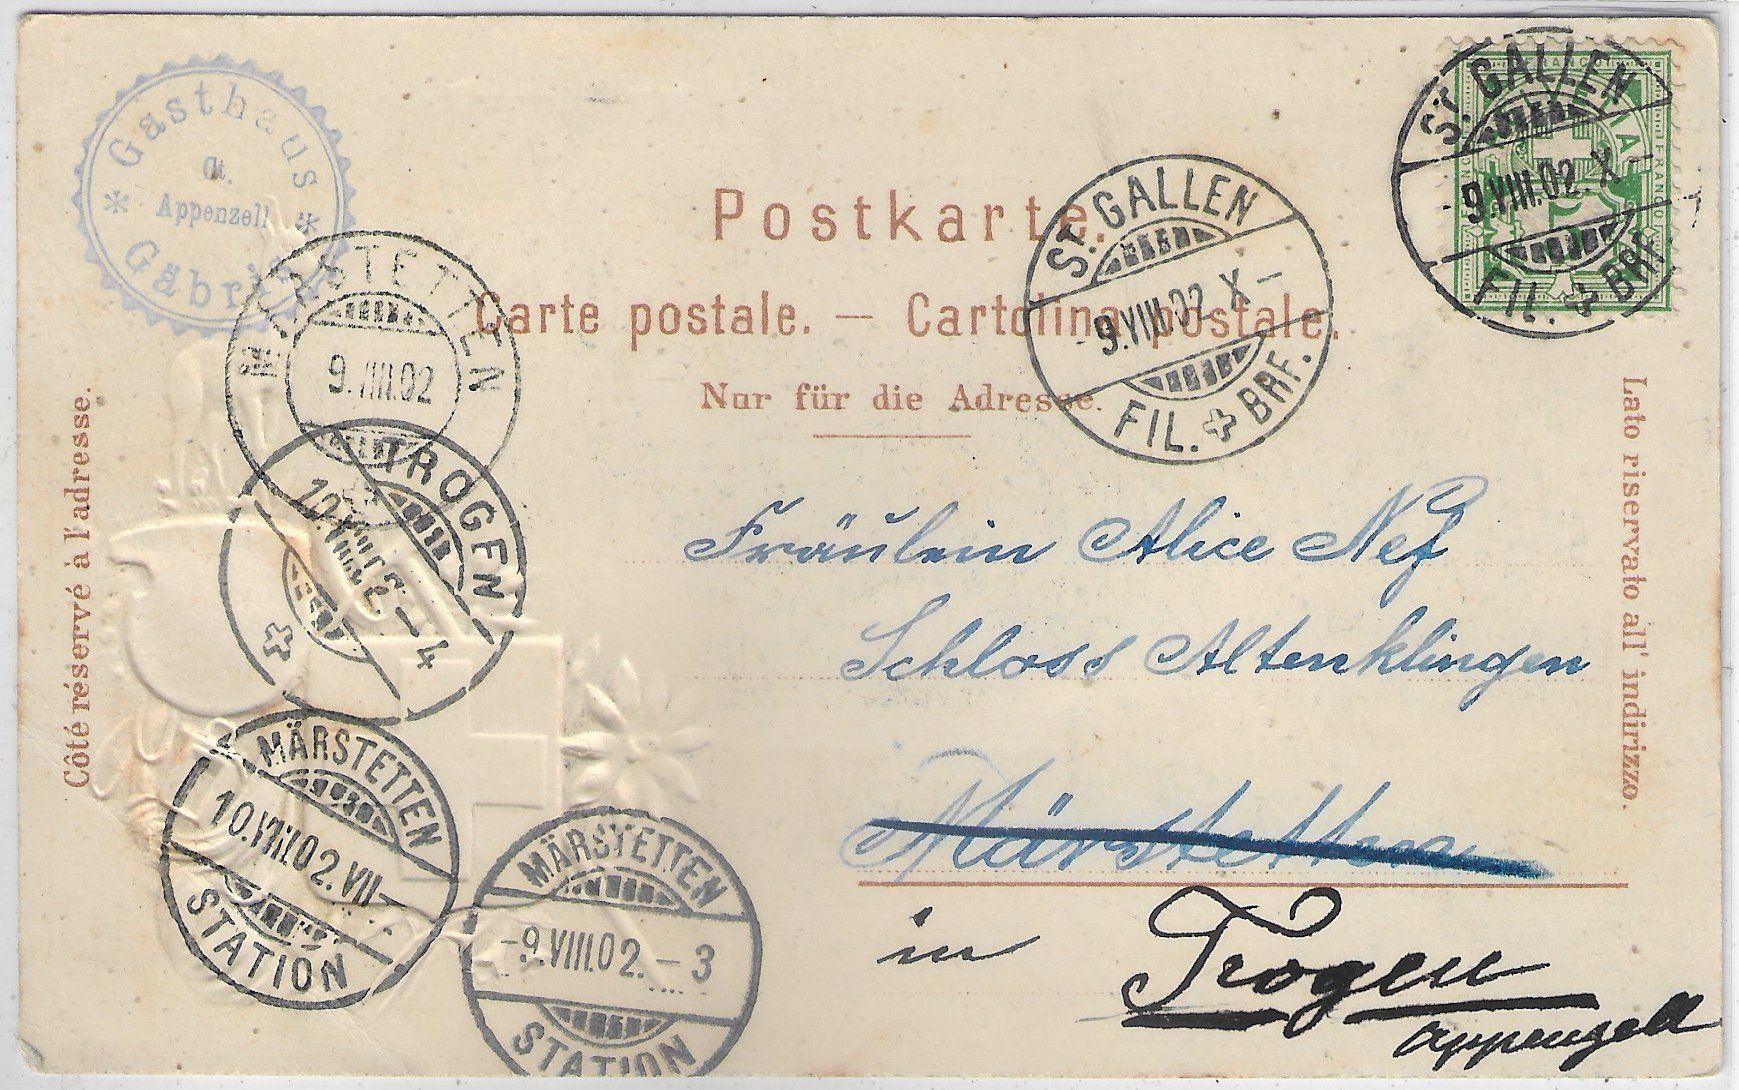 Gasthaus
Ct.
Appenzell
* Gäbris *
ST. GALLEN
-9.VIII.02.X-
FIL. BRF.
FRANCO
FRANCO
5
Postkarte.
Carte postale. — Cartolina postale.
Nur für die Adresse.
ST. GALLEN
-9.VIII.02 X-
FIL. BRF.
Côté réservé à l'adresse.
Lato riservato all' indirizzo.
MÄRSTETTEN
9.VIII.02
TROGEN
10.VIII.02.-4
Fräulein Alice Nef
Schloss Altenklingen
Märstetten
in Trogen
Appenzell
MÄRSTETTEN
10.VIII.02.VII-
STATION
MÄRSTETTEN
-9.VIII.02.-3
STATION